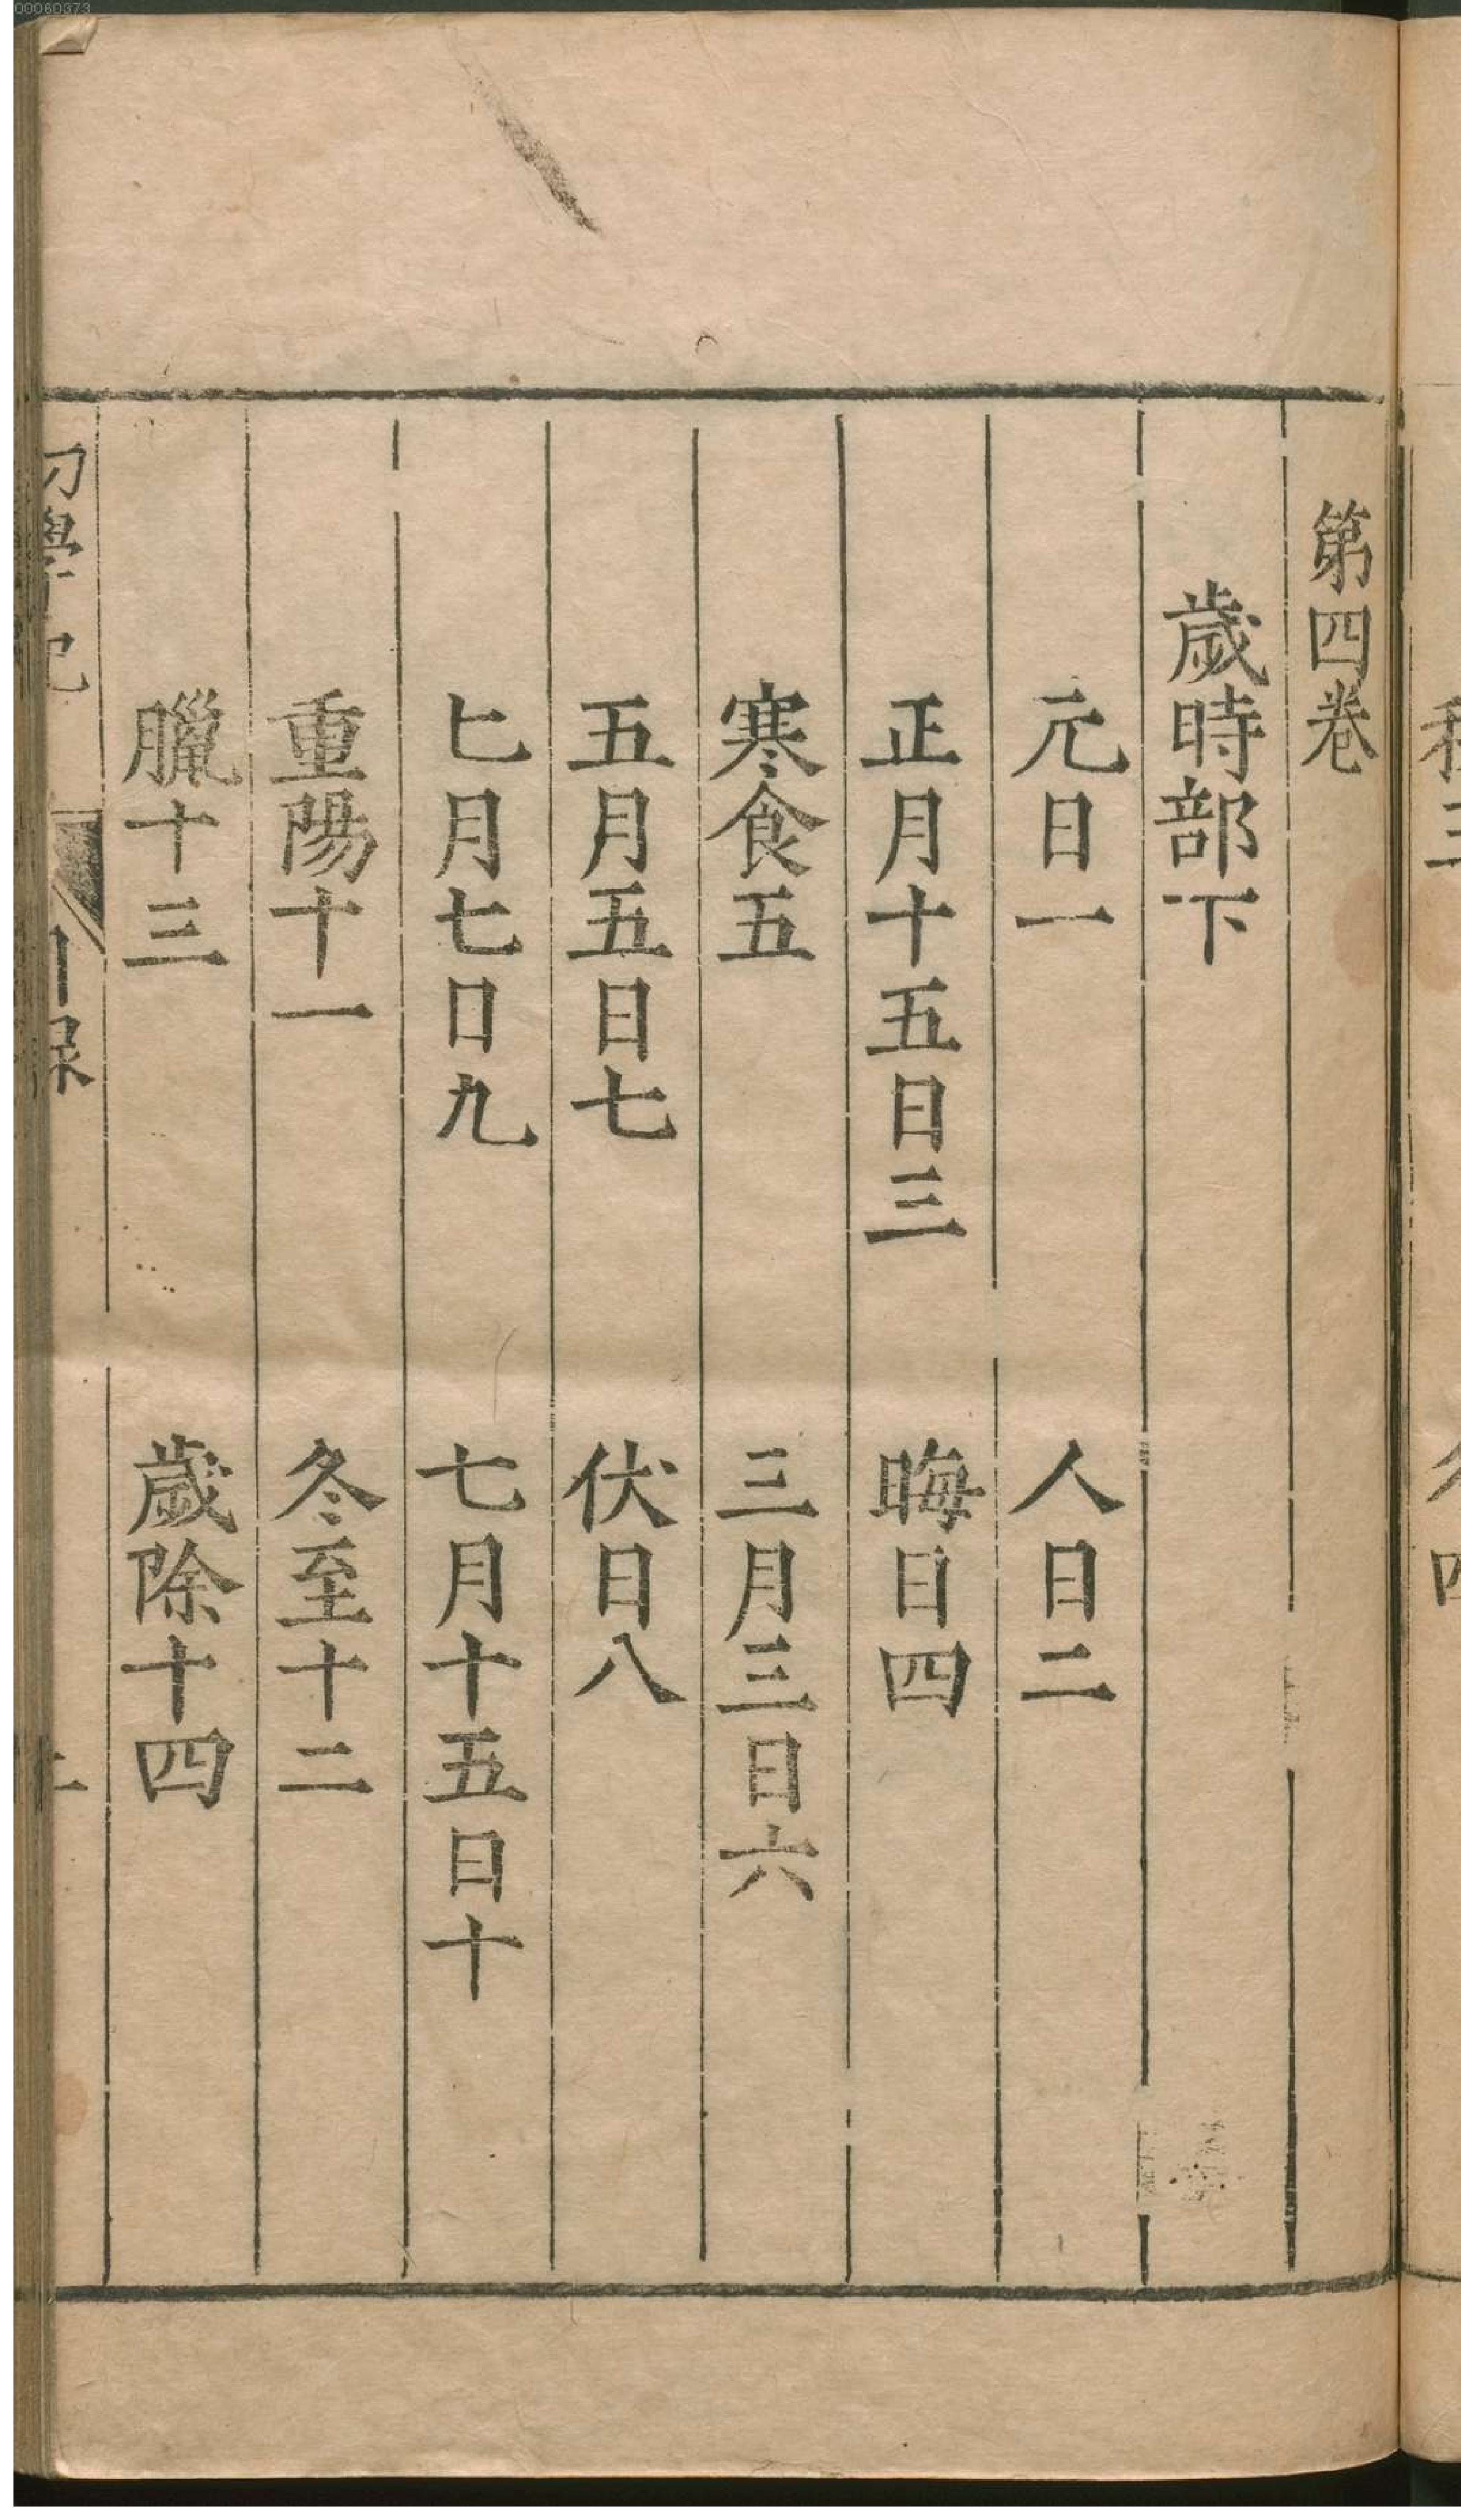 第四卷
歲時部下
元日一 人日二
正月十五日三 晦日四
寒食五 三月三日六
五月五日七 伏日八
七月七日九 七月十五日十
重陽十一 冬至十二
臘十三 歲除十四
00060373